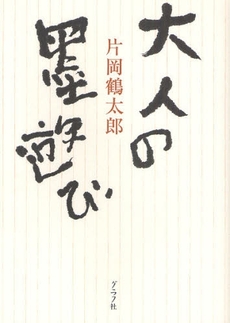 大人の
墨遊び
片岡鶴太郎
グラフ社